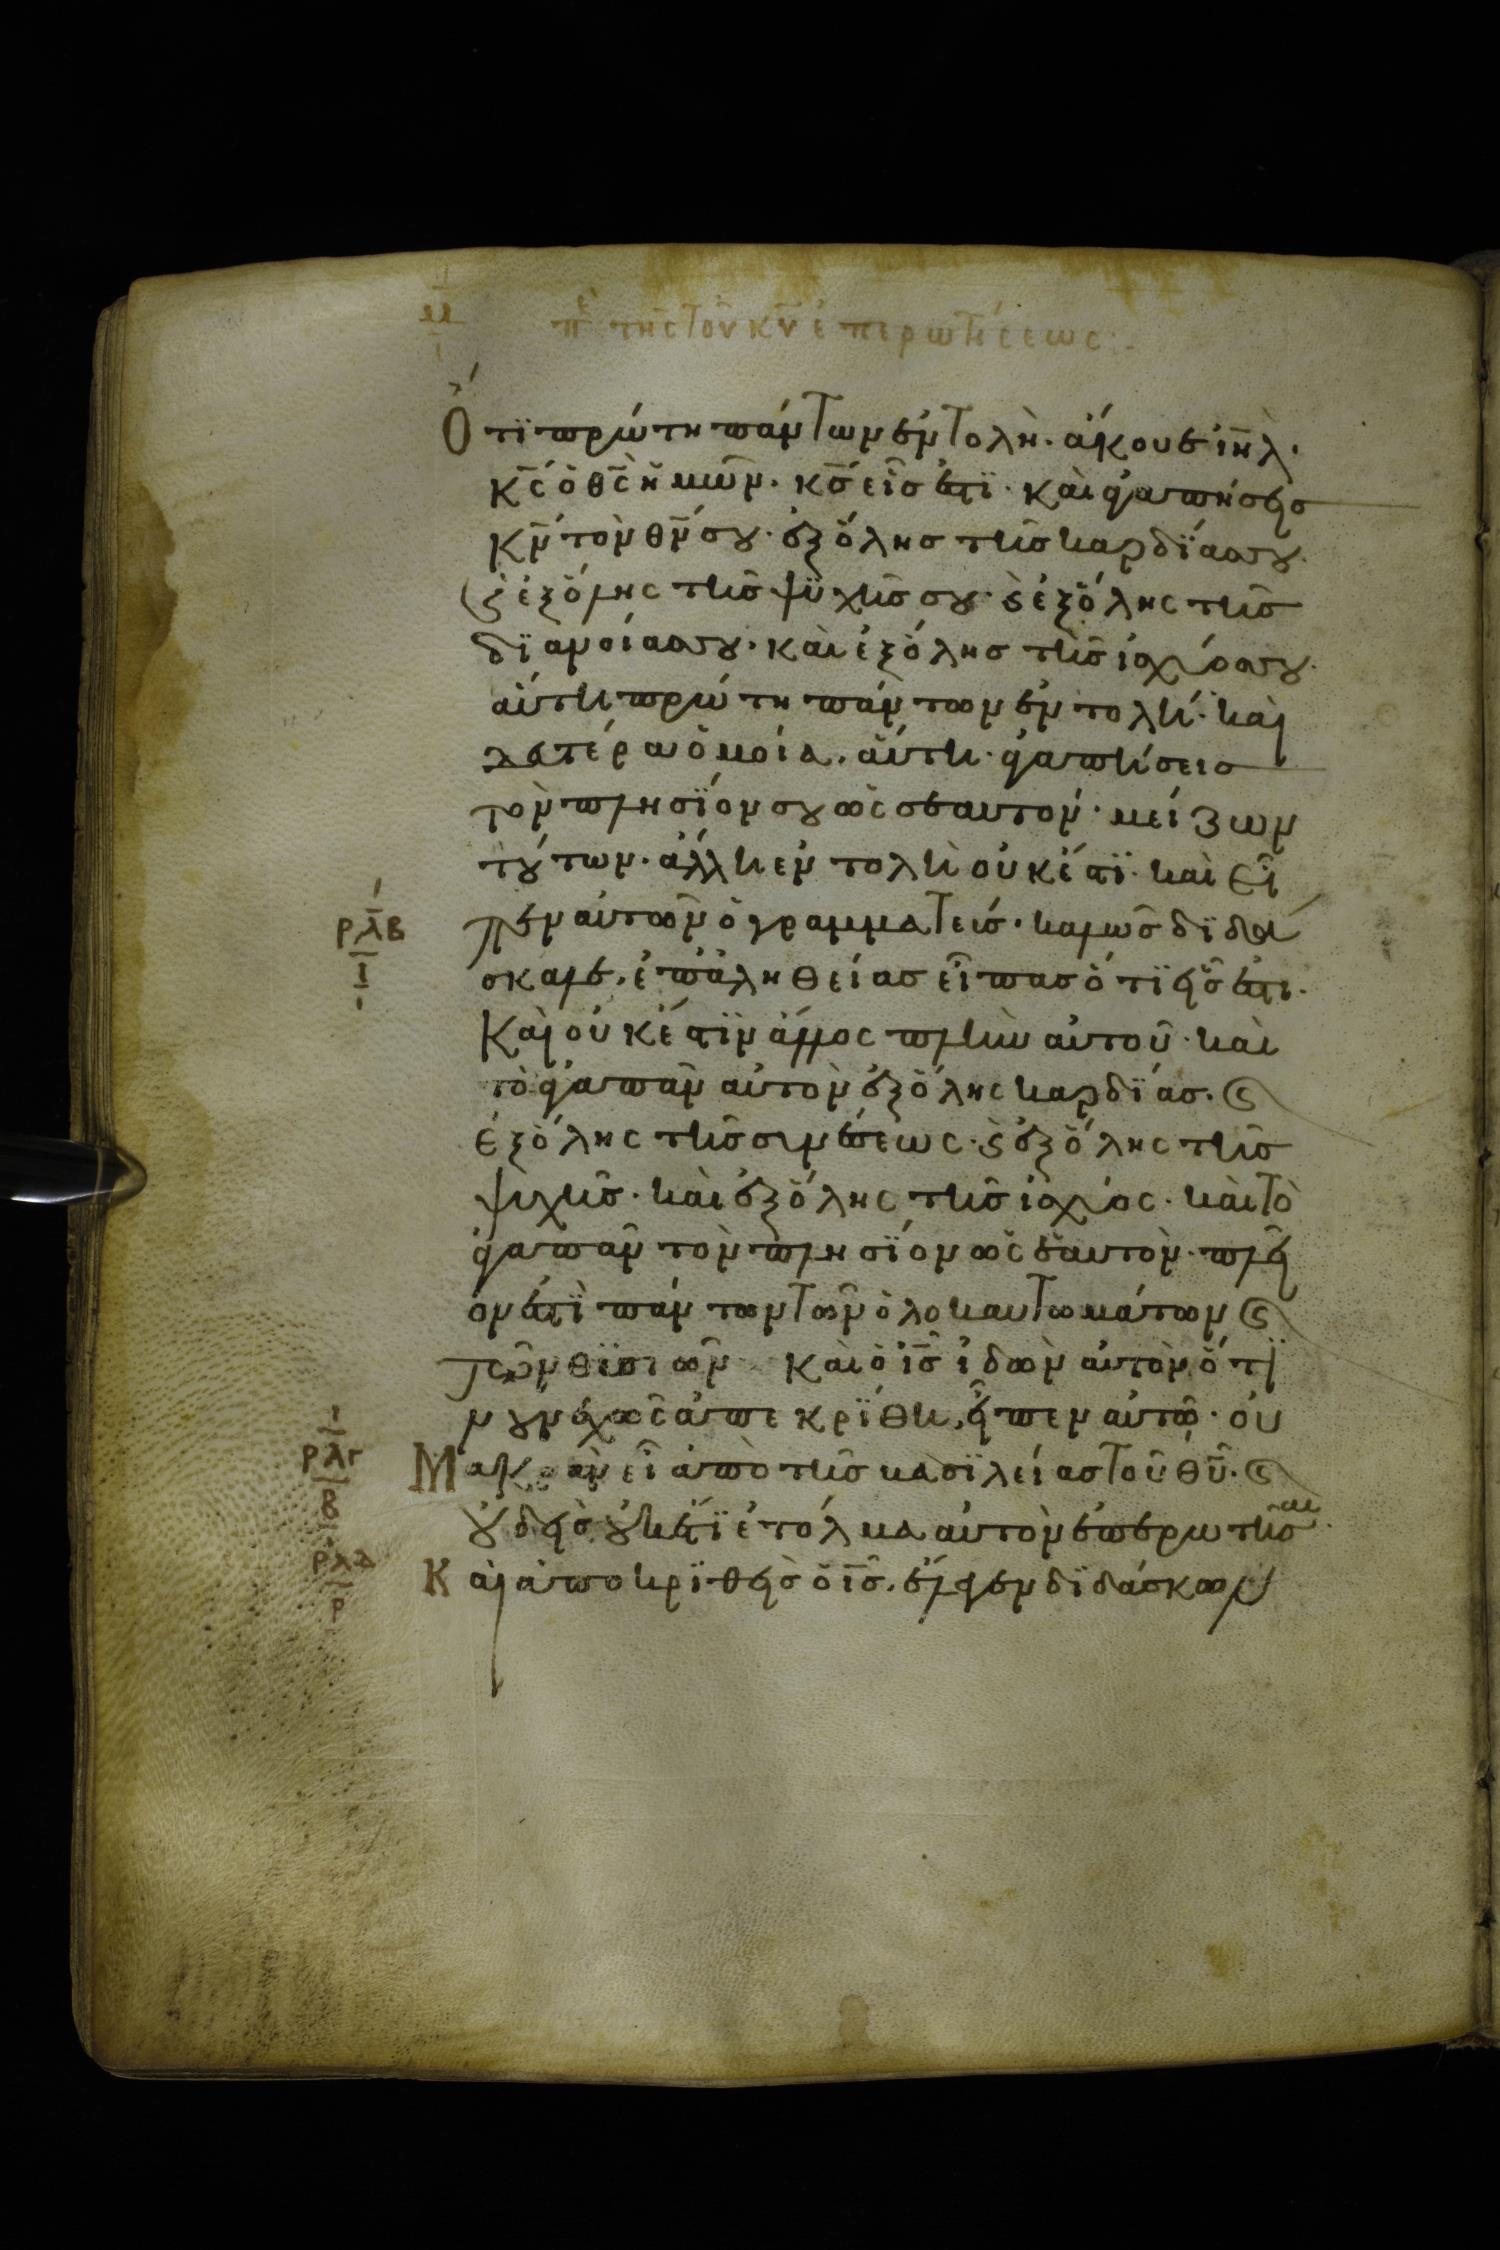 μ περὶ τῆς τοῦ κῡ ἐπερωτήσεως
Ὅτι πρώτη πάντων ἐντολὴ· ἄκουε ιῆλ·
κ̅ς ὁ θ̅ς ἡμῶν· κ̅ς εἷς ἐστϊ· καὶ ἀγαπήσεις
κ̅ν τὸν θ̅ν σου· ἐξ ὅλης τῆς καρδΐας σου·
καὶ ἐξ ὅλης τῆς ψϋχῆς σου· καὶ ἐξ ὅλης τῆς
δϊανοίας σου· καὶ ἐξ ὅλης τῆς ἰσχύος σου·
αὕτη πρώτη πάντων ἐντολή· καὶ
δευτέρα ὁμοία. αὕτη· ἀγαπήσεις
τὸν πλησϊον σου ὡς σεαυτόν· μείζων
τούτων· ἄλλη ἐντολὴ οὐκ ἔστϊ· καὶ εἶ
ρλβ
ι
πεν αὐτῶ ὁ γραμματεύς· καλῶς δϊδά
σκαλε, ἐπ' ἀληθείας εἶπας ὅτϊ εἷς ἐστι·
Καὶ οὐκ ἔστϊν ἄλλος πλὴν αὐτοῦ· καὶ
τὸ ἀγαπᾶν αὐτὸν ἐξ ὅλης καρδΐας· καὶ
ἐξ ὅλης τῆς συνέσεως· καὶ ἐξ ὅλης τῆς
ψυχῆς· καὶ ἐξ ὅλης τῆς ἰσχύος· καὶ τὸ
ἀγαπᾶν τὸν πλησΐον ὡς ἑαυτὸν· πλεῖ
όν ἐστϊ πάντων τῶν ὁλοκαυτωμάτων καὶ
τῶν θϋσιῶν καὶ ὁ ι̅ς ἰδὼν αὐτὸν ὅτϊ
νουνεχῶς ἀπεκρΐθη, εἶπεν αὐτῶ· οὐ
ρλγ
β
Μακρὰν εἶ ἀπὸ τῆς βασϊλείας τοῦ θ̅υ· καὶ
οὐδεὶς οὐκέτϊ ἐτόλμα αὐτὸν ἐπερωτῆσαι·
ρλδ
Καὶ ἀποκρϊθεὶς ὁ ι̅ς. ἔλεγεν δϊδάσκων